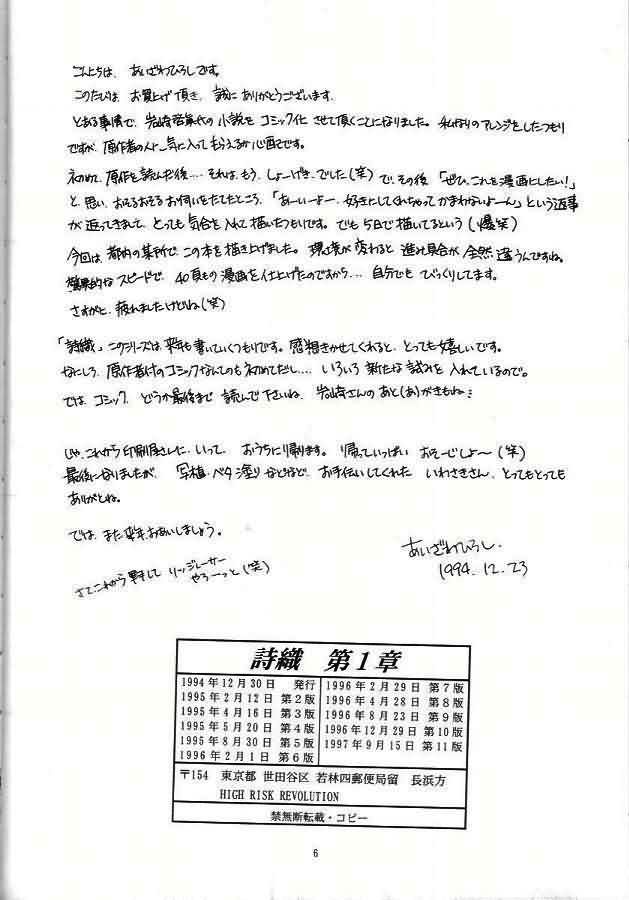 こんにちは、あいざわひろしです。
このたびは、お買上げ頂き、誠にありがとうございます。
とある事情で、岩崎啓眞代の小説をコミック化させて頂くことになりました。私なりのアレンジをしたつもり
ですが、原作者の人に気に入ってもらえるか心配です。
初めて、原作を読んだ後… それは、もう、しょーげき、でした(笑)で、その後「ぜひ、これを漫画にしたい!」
と思い、おそるおそるお伺いをたてたところ、「あーいーよー、好きにしてくれちゃってかまわないよーん」という返事
が返ってきました、とっても気合を入れて描いたつもりです。でも5日で描いてるという(爆笑)
今回は、都内の某所で、この本を描き上げました。環境が変わると進み具合が全然違うんですね。
驚異的なスピードで、40頁もの漫画を仕上げたのですから… 自分でもびっくりしてます。
さすがに、疲れましたけどね(笑)
「詩織」このシリーズは、来年も書いていくつもりです。感想きかせてくれると、とっても嬉しいです。
なにしろ、原作者付のコミックなんてのも初めてだし… いろいろ新たな試みを入れているので。
では、コミック、どうか最後まで読んで下さいね、岩崎さんのあと(あ)がきもね
じゃ、これから印刷屋さんに、いって、おうちに帰ります。帰っていっぱいおそーじしよ~(笑)
最後になりましたが、写植・ベタ塗りなどなど、お手伝いしてくれた いわさきさん、とってもとっても
ありがとね。
では、また来年、おあいしましょう。
あいざわひろし.
1994.12.23
さて、これから リッジレーサー
やろーっと(笑)
詩織 第1章
1994年12月30日 発行
1995年2月12日 第2版
1995年4月16日 第3版
1995年5月20日 第4版
1995年8月30日 第5版
1996年2月1日 第6版
1996年2月29日 第7版
1996年4月28日 第8版
1996年8月23日 第9版
1996年12月29日 第10版
1997年9月15日 第11版
〒154 東京都 世田谷区 若林四郵便局留 長浜方
HIGH RISK REVOLUTION
禁無断転載・コピー
6